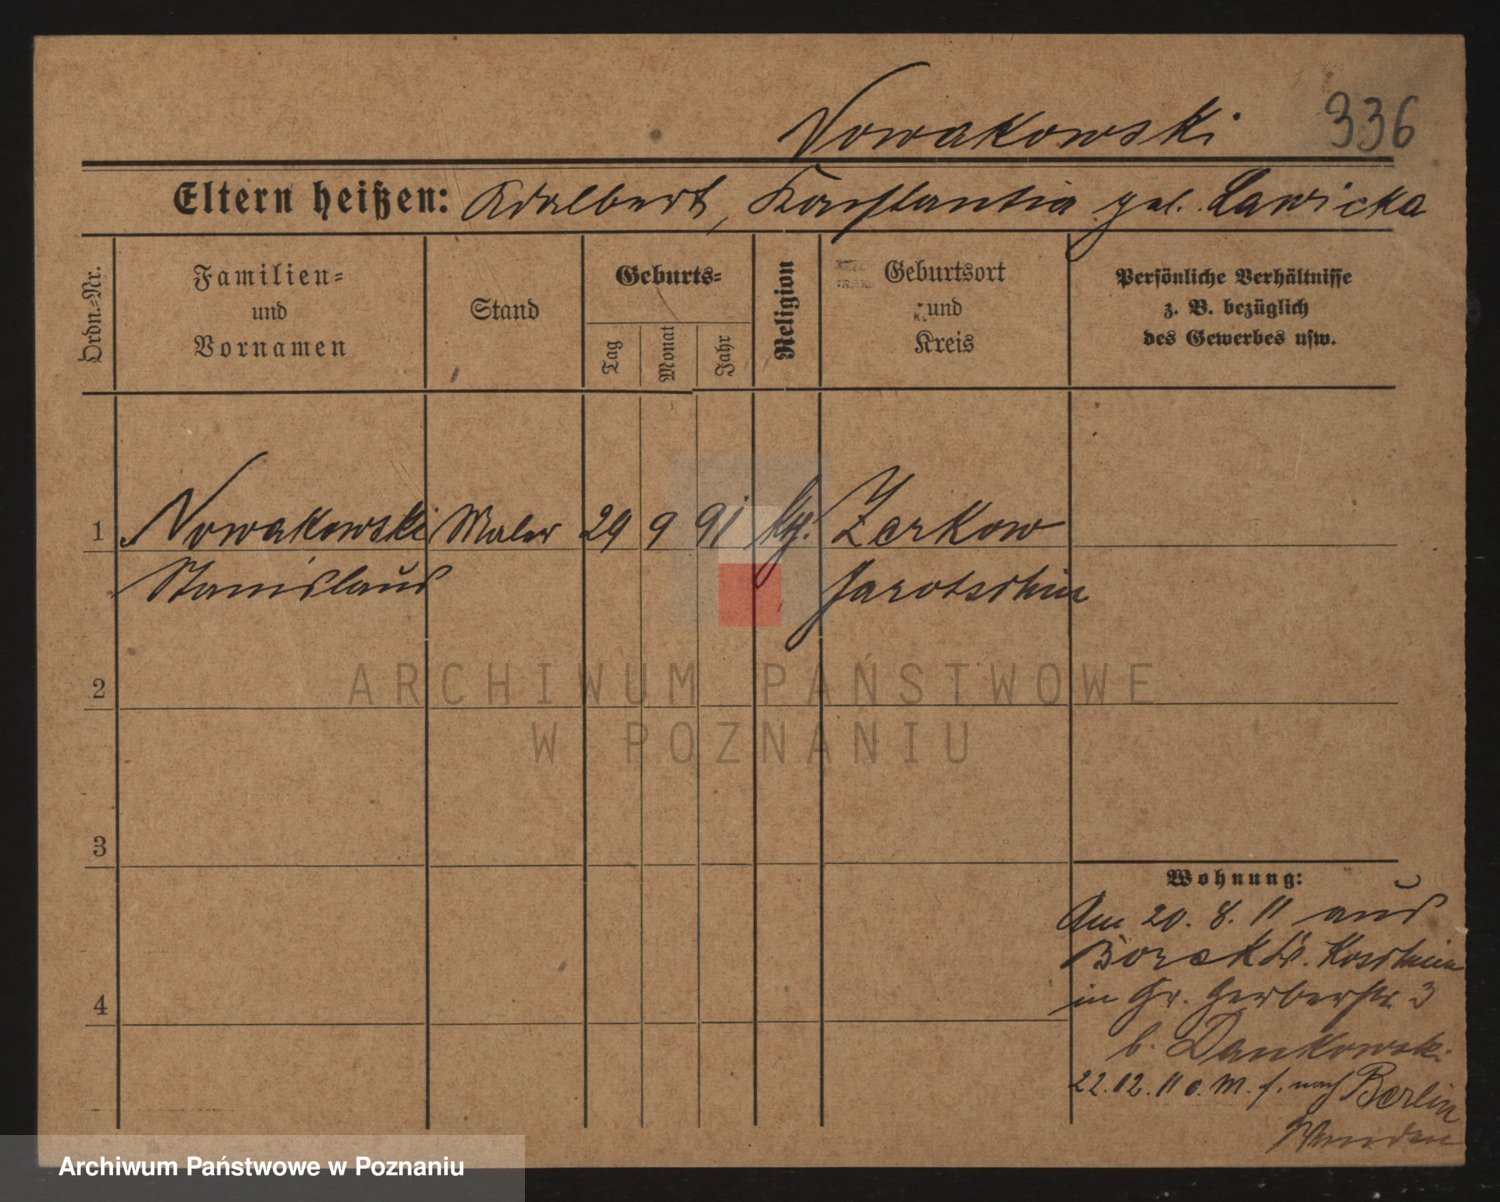 Nowakowski 336
Eltern heißen: Adalbert, Konstantia geb. Lawicka
Ordn.-Nr.
Familien-
und
Vornamen
Stand
Geburts-
Tag
Monat
Jahr
Religion
Geburtsort
und
Kreis
Persönliche Verhältnisse
z. B. bezüglich
des Gewerbes usw.
1 Nowakowski Maler 29 9 91 kg. Zerkow
Stanislaus Jarotschin
ARCHIWUM PAŃSTWOWE
W POZNANIU
2
3
4
Wohnung:
Am 20. 8. 11 aus
Borek Kr. Koschmin
in Gr. Gerberstr. 3
b. Dankowski
22.12.11 o. M. f. nach Berlin
Archiwum Państwowe w Poznaniu